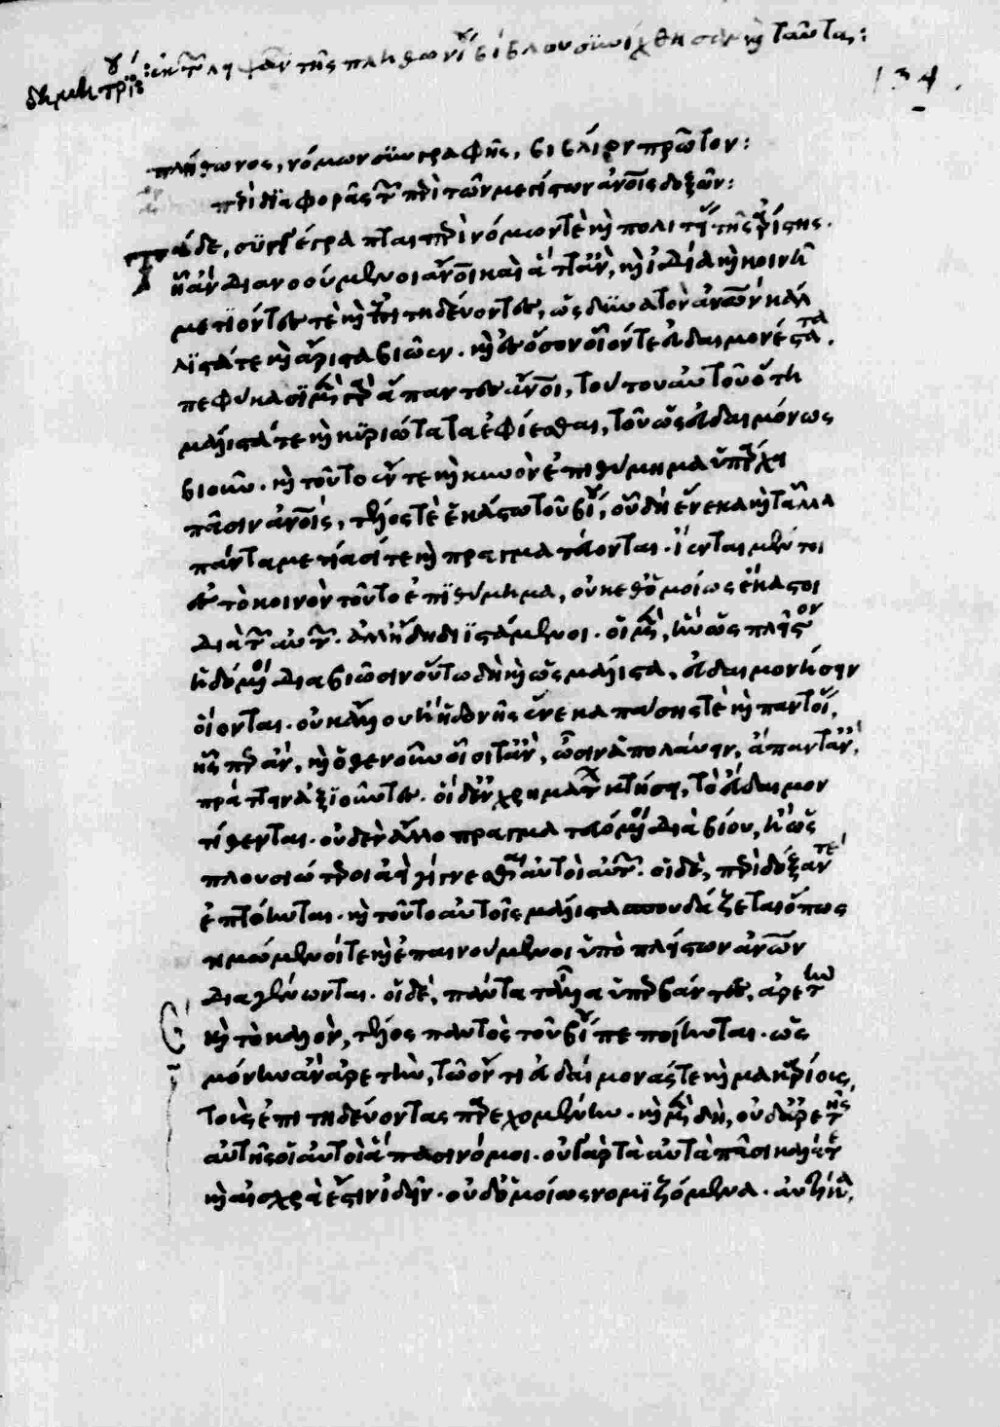 Δημητρίου: ἐκ τῶν λη τῆς Πλήθωνος βίβλου συνήχθησαν καὶ ταῦτας:
134.
πλήθωνος, νόμων συγγραφῆς, βιβλίον πρῶτον:
περὶ διαφορᾶς τῶν περὶ τῶν μεγίστων ἀνθρώποις δοξῶν:
Τάδε, συγγέγραπται περὶ νόμων τὲ καὶ πολιτείας τῆς ἀρίστης.
ᾗ ἂν διανοούμενοι ἄνθρωποι καὶ ἅττ' ἂν, καὶ ἰδίᾳ καὶ κοινῇ
μετιόντες τὲ καὶ ἐπιτηδεύοντες, ὡς δυνατὸν ἀνθρώπῳ κάλ
λιστά τε καὶ ἄριστα βιῶεν. καὶ ἐς ὅσον οἷόν τε εὐδαιμονέστατα.
πεφύκασι μὲν γὰρ ἅπαντες ἄνθρωποι, τούτου αὐτοῦ ὅτι
μάλιστά τε καὶ κυριώτατα ἐφίεσθαι, τοῦ ὡς εὐδαιμόνως
βιοῦν. καὶ τοῦτο ἕν τε καὶ κοινὸν ἐπιθύμημα ὑπάρχει
πᾶσιν ἀνθρώποις, τέλος τὲ ἑκάστῳ τοῦ βίου, οὗ δὴ ἕνεκα καὶ τἄλλα
πάντα μετίασί τε καὶ πραγματεύονται. ἵενται μέντοι
ἐς τὸ κοινὸν τοῦτο ἐπιθύμημα, οὐκέθ' ὁμοίως ἕκαστοι
διὰ τῶν αὐτῶν. ἀλλ' ἤδη διϊστάμενοι. οἱ μὲν, ἢν ὡς πλεῖστον
ἡδόμενοι διαβιῶσιν οὕτω δὴ καὶ ὡς μάλιστα, εὐδαιμονήσειν
οἴονται. οὐκ ἄλλου ἢ ἡδονῆς ἕνεκα πάσης τὲ καὶ παντοίας,
ἧς περ ἂν, καὶ ὅθεν οὖν οἷοί τ' ἂν, ὦσιν ἀπολαύειν, ἅπαντ' ἂν,
πράττειν ἀξιοῦντες. οἱ δ' ἐν χρημάτων κτήσει, τὸ εὔδαιμον
τίθενται. οὐδὲν ἄλλο πραγματευόμενοι διὰ βίου, ἢ ὡς
πλουσιώτεροι ἀεὶ γίγνεσθαι αὐτοὶ αὑτῶν. οἱ δὲ, περὶ δόξαν τὲ
ἐπτόηνται. καὶ τοῦτο αὐτοῖς μάλιστα σπουδάζεται ὅπως
τιμώμενοί τε καὶ ἐπαινούμενοι ὑπὸ πλείστων ἀνθρώπων
διαγένωνται. οἱ δὲ, πάντα τἄλλα ὑπερβάντες, ἀρετὴν
καὶ τὸ καλὸν, τέλος παντὸς τοῦ βίου πεποίηνται. ὡς
μόνην ἂν ἀρετὴν, τῷ ὄντι εὐδαίμονάς τε καὶ μακαρίους,
τοὺς ἐπιτηδεύοντας παρεχομένην. καὶ μὲν δὴ, οὐδ' ἀρετῆς
αὐτῆς οἱ αὐτοὶ ἅπασι νόμοι. οὐ γὰρ τὰ αὐτὰ πᾶσι καλά τε
καὶ αἰσχρὰ ἔστιν ἰδεῖν. οὐδ' ὁμοίως νομιζόμενα. αὐτίκα,